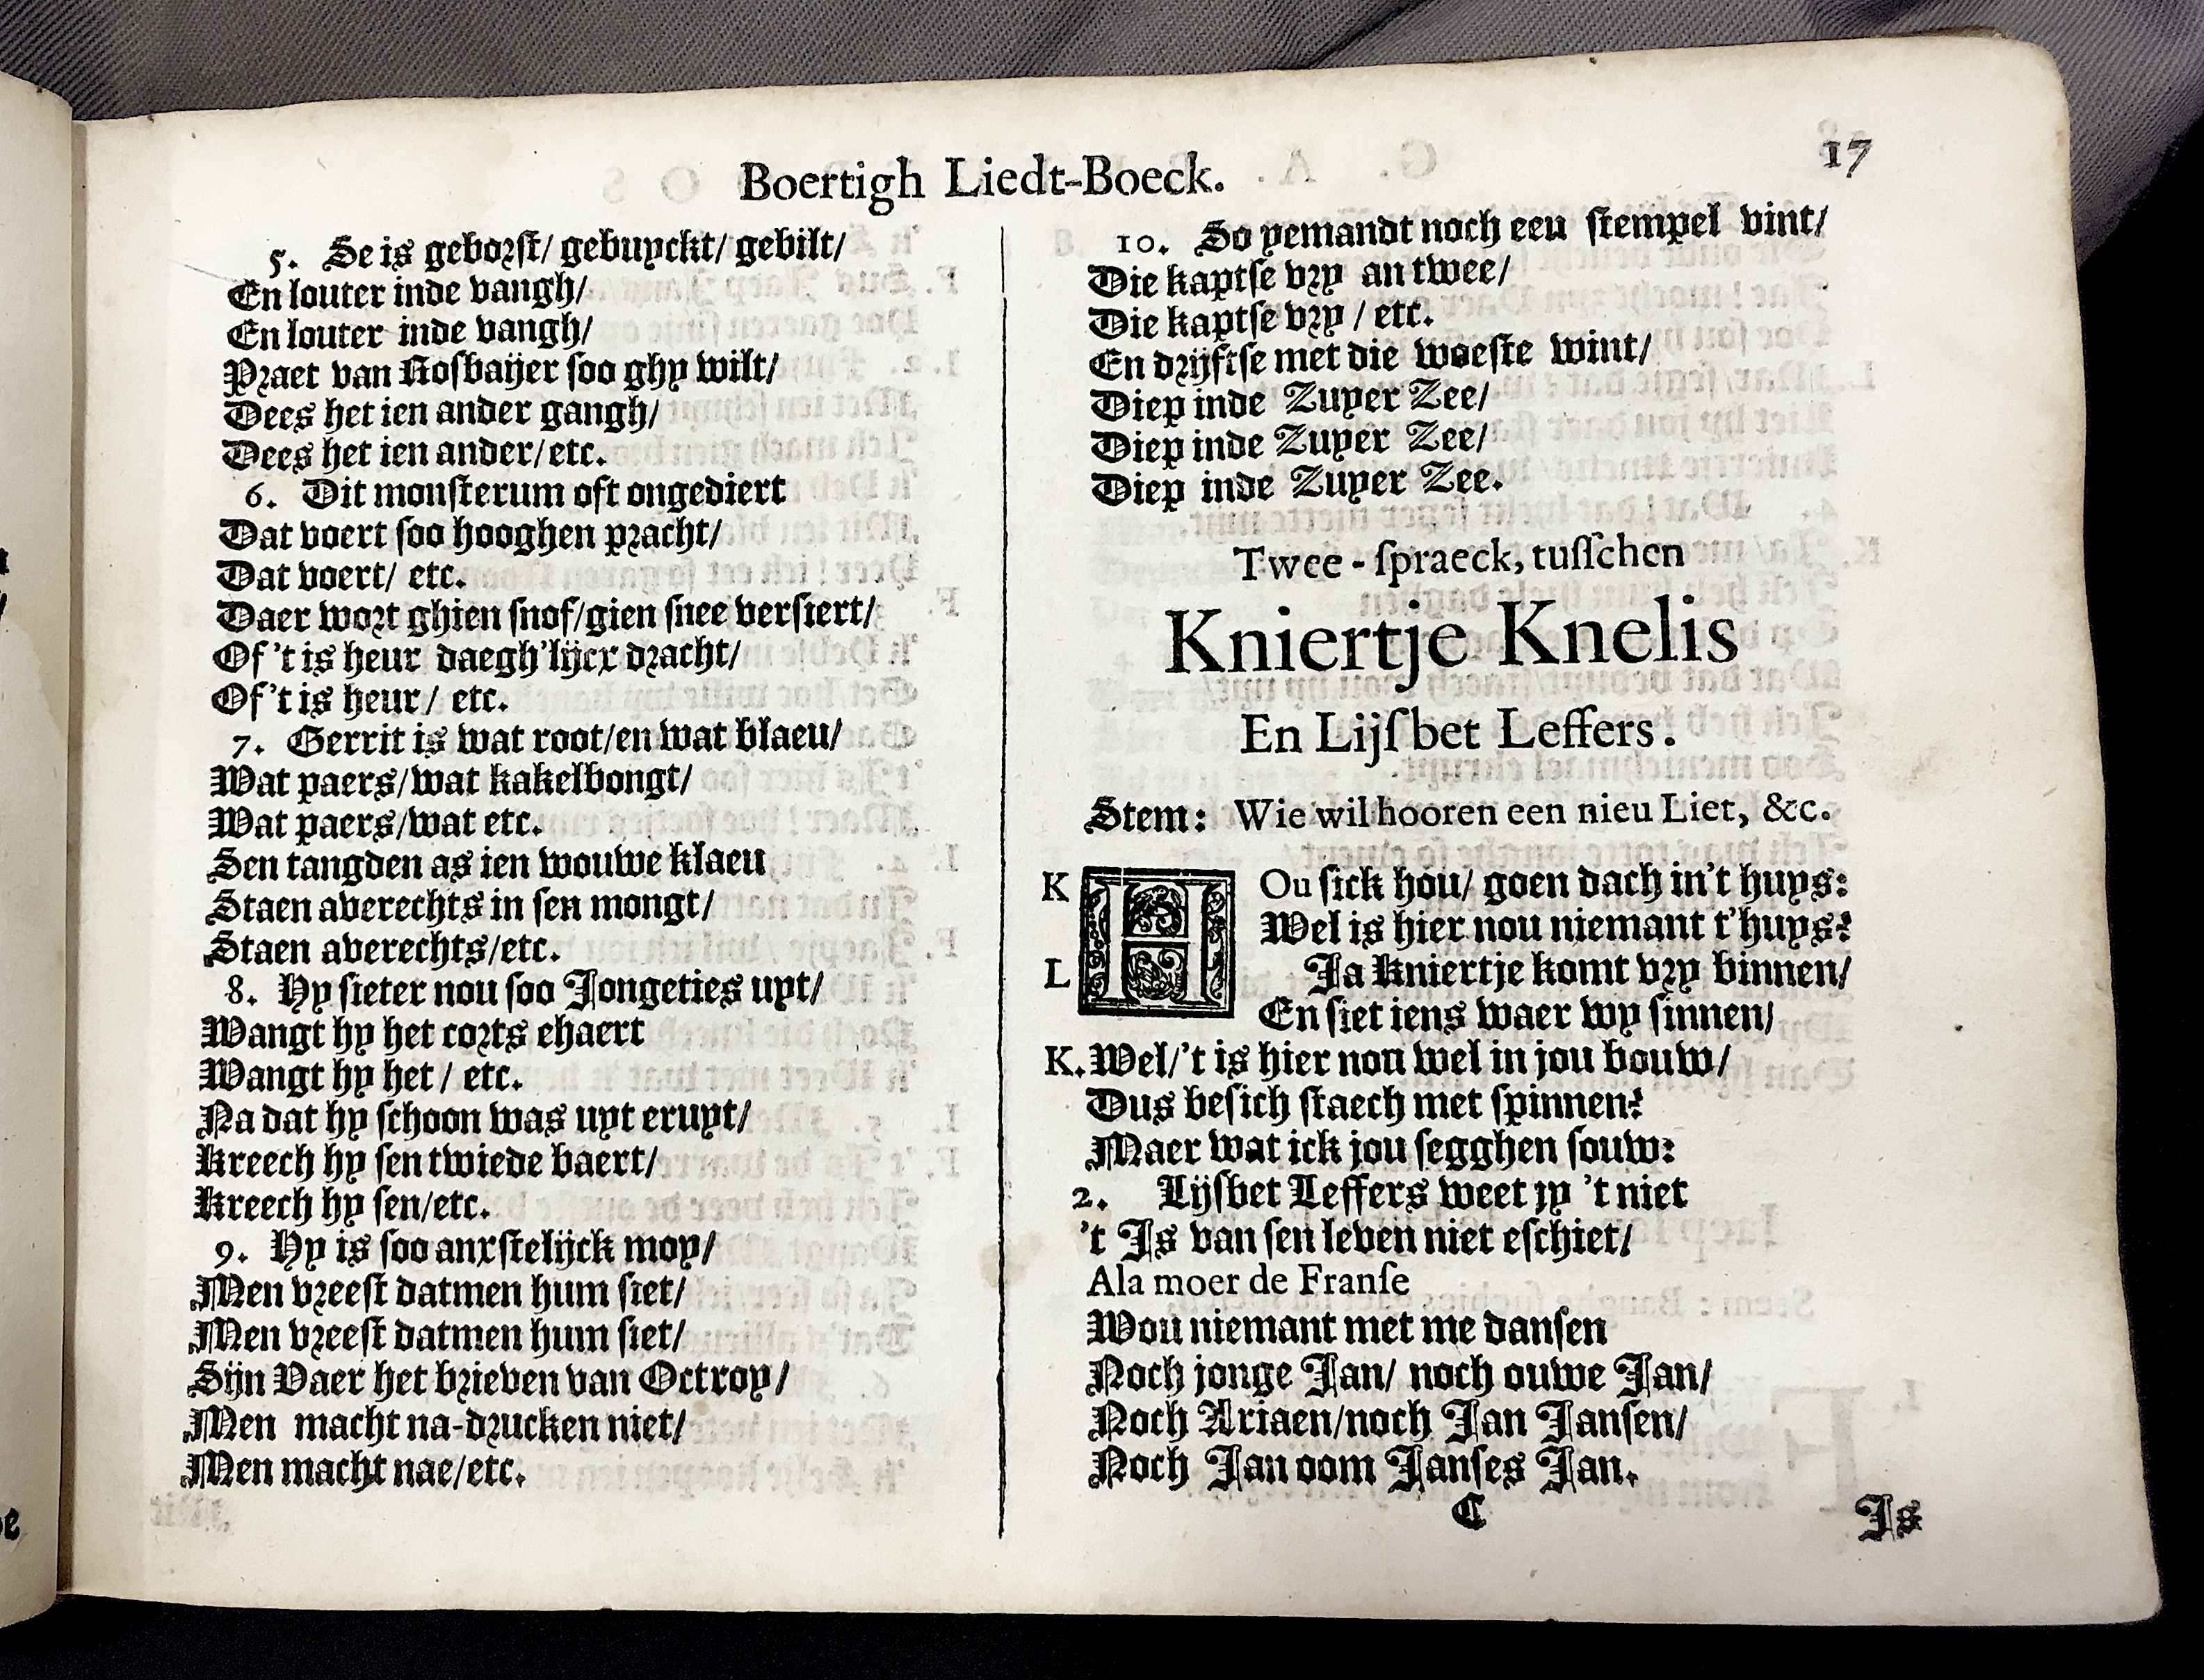 Boertigh Liedt-Boeck.
17
5. Se is geborst/ gebuyckt/ gebilt/
En louter inde vangh/
En louter inde vangh/
Praet van Rosbaijer soo ghy wilt/
Dees het ien ander gangh/
Dees het ien ander/etc.
6. Dit monsterum oft ongediert
Dat voert soo hooghen pracht/
Dat voert/ etc.
Daer wort ghien snof/gien snee versiert/
Of 't is heur daegh'lijcx dracht/
Of 't is heur/ etc.
7. Gerrit is wat root/en wat blaeu/
Wat paers/wat kakelbongt/
Wat paers/wat etc.
Sen tangden as ien wouwe klaeu
Staen averechts in sen mongt/
Staen averechts/etc.
8. Hy sieter nou soo Jongeties uyt/
Wangt hy het corts ehaert
Wangt hy het/ etc.
Na dat hy schoon was uyt eruyt/
Kreech hy sen twiede baert/
Kreech hy sen/etc.
9. Hy is soo anxstelijck moy/
Men vreest datmen hum siet/
Men vreest datmen hum siet/
Sijn Vaer het brieven van Octroy/
Men macht na-drucken niet/
Men macht nae/etc.
10. So yemandt noch eeu stempel vint/
Die kaptse vry an twee/
Die kaptse vry / etc.
En drijftse met die woeste wint/
Diep inde Zuyer Zee/
Diep inde Zuyer Zee/
Diep inde Zuyer Zee.
Twee-spraeck, tusschen
Kniertje Knelis
En Lijsbet Leffers.
Stem: Wie wil hooren een nieu Liet, &c.
K HOu sick hou/ goen dach in't huys:
Wel is hier nou niemant t'huys?
L Ja Kniertje komt vry binnen/
En siet iens waer wy sinnen/
K. Wel/'t is hier non wel in jou bouw/
Dus besich staech met spinnen?
Maer wat ick jou segghen souw:
2. Lijsbet Leffers weet jy 't niet
't Is van sen leven niet eschiet/
Ala moer de Franse
Wou niemant met me dansen
Noch jonge Jan/ noch ouwe Jan/
Noch Ariaen/noch Jan Jansen/
Noch Jan oom Janses Jan.
C
Is